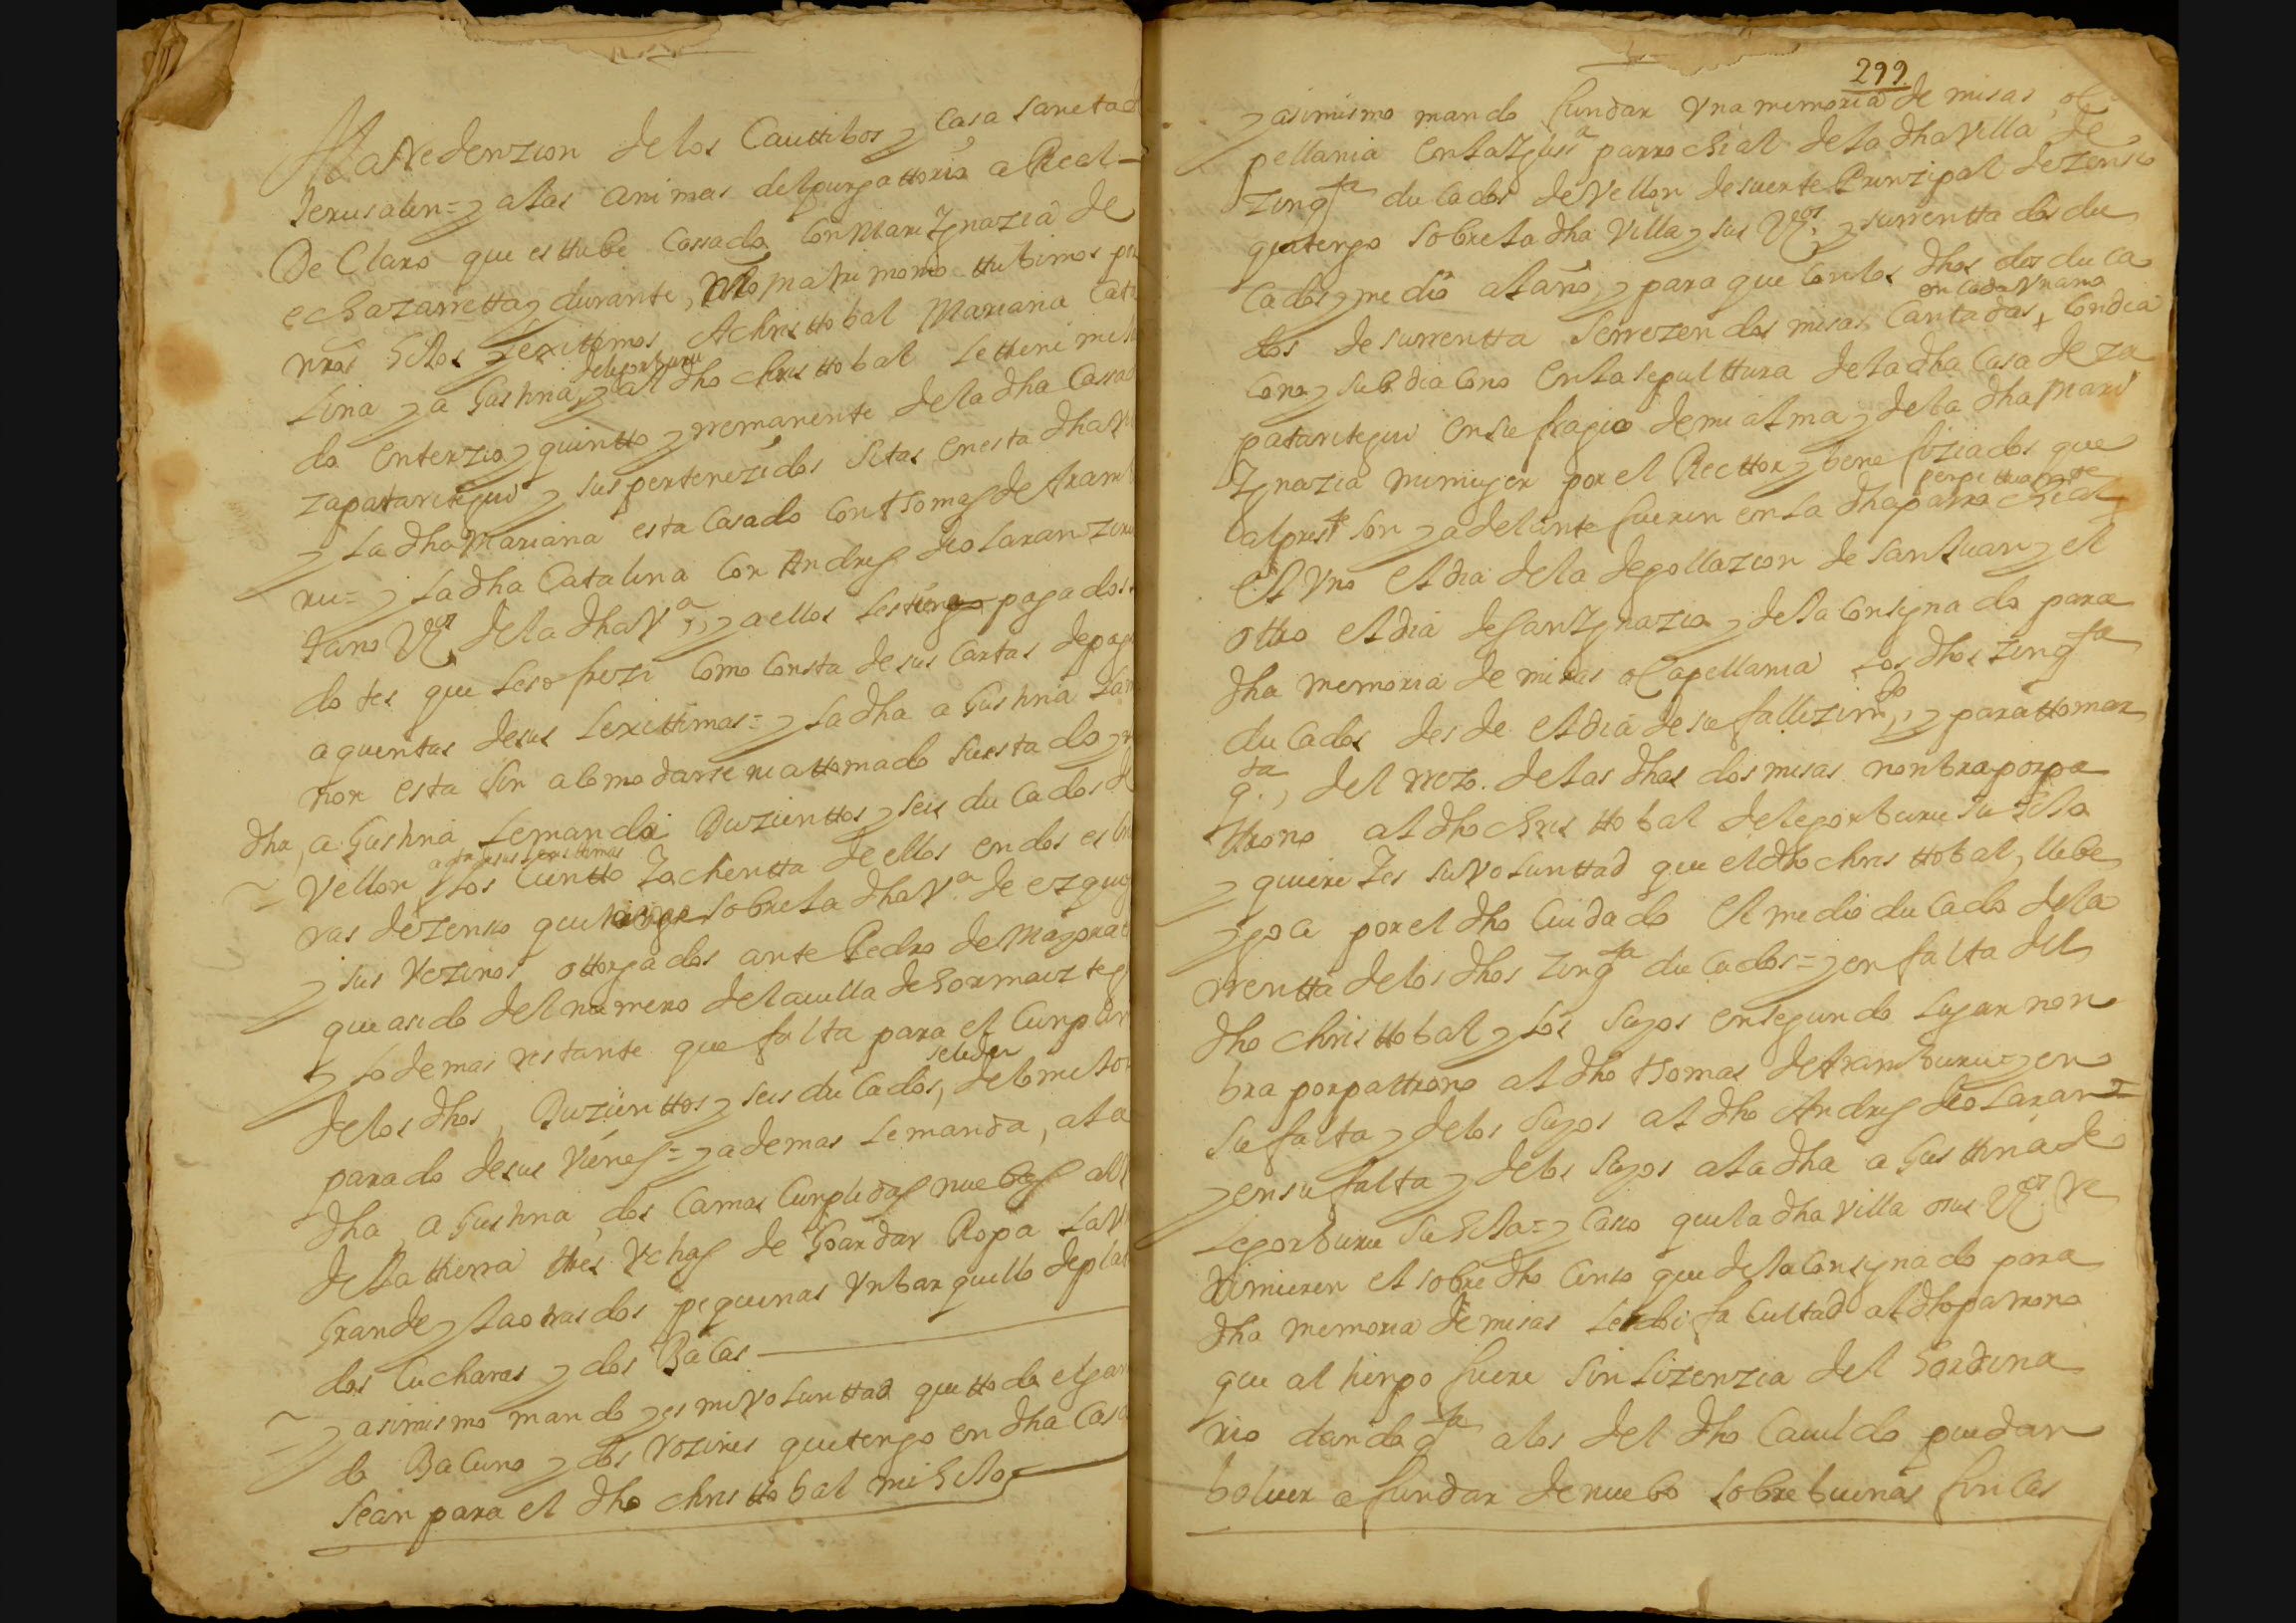 A la Redenzion de los Cauttibos y Casa Sancta d
Jerusalen = y a las animas del purgattorio a Real =
De Claro que estube Cassado con Mari Ygnazia de
echazarretta y durante, nro matrimonio ttubimos por
nros hilos lexittimos A christtobal Mariana Cata
lina y a Gustina, y al dho christtobal de legorburu Le tteni mi
do en terzio y quintto y rremanente de la dha Cassa
zapataritegui y sus pertenezidos sitas en esta dha V
y La dha Mariana esta Casado con Thomas de Aram
ru = y La dha Catalina con Andres de olaran
tano Vºs de la dha Vª, y a ellos les tengo pagados
dotes que les ofrezi como Consta de sus Cartas de pag
a quentas de sus lexittimas = y La dha a Gustina
nor esta sin acomodarse ni a ttomado su estado y
dha, a Gustina Le manda Duzienttos y seis ducados d
Vellon a qta de sus lexitimas los Cientto y ochentta de ellos en dos es
ras de Zenso que tengo sobre la dha Vª de ezquio
y sus Vezinos ottorgados ante Pedro de Mayora
que a sido del numero de la villa de hormaiztegui
y lo demas restante que falta para el Cunplim
de los dhos, Duzienttos y seis ducados, se le den de lo mexor
parado de sus Vienes = y ademas le manda, a la
dha a Gustina dos Camas Cunplidas nuebas al
de la tierra tres Vchas de Goardar Ropa La V
Grande y las otras dos pequenas Vn barquillo de plat
dos Cucharas y dos Bacas
y asimismo mando y es mi voluntad que ttodo el gan
do Bacuno y dos rozines que tengo en dha Casa
sean para el dho christtobal mi hilo =
299
y asimismo mando fundar Vna memoria de misas o Ca
pellania en la Yglesiª parrochial de la dha Villa de
Zinqta ducados de Vellon de suerte Prinzipal de Zenso
que tengo sobre la dha Villa y sus Vºs, y su rrentta dos du
cados y medio al año, y para que con los dhos dos duca
dos de su rrentta se rrezen dos misas Cantadas en cada Vn año con dia
cono y subdiacono en la sepulttura de la dha Casa de za
pataritegui en sufragio de mi alma y de la dha Mari
Ygnazia mi mujer por el Recttor y benefiziados que
al preste son y adelante fueren en la dha parrochial perpettuamte
el Vno el dia de la degollazion de san Juan y el
ottro el dia de san Ygnazio y dexa consignado para
dha memoria de misas o Capellania los dhos Zinqta
ducados desde el dia de su fallezimto, y para ttomar
qta, del rrezo de las dhas dos misas nonbra por pa
ttrono al dho christtobal de legorburu su hilo
y quiere y es su voluntad que el dho christtobal, llebe
y goce por el dho cuidado el medio ducado de la
rrentta de los dhos Zinqta ducados = y en falta del
dho christtobal y los suyos en segundo lugar non
bra por pattrono al dho Thomas de Aramburu = y en
su falta y de los suyos al dho Andres de olaran =
y en su falta y de los suyos a la dha a Gusttina de
Legorburu su hila = y Caso que la dha villa o sus Vºs Re
dimieren el sobre dho Censo que dexa consignado para
dha memoria de misas le doi facultad al dho patrono
que al tienpo fuere sin lizenzia del hordina
rio dando qta a los del dho Cauildo puedan
boluer a fundar de nuebo sobre buenas fincas